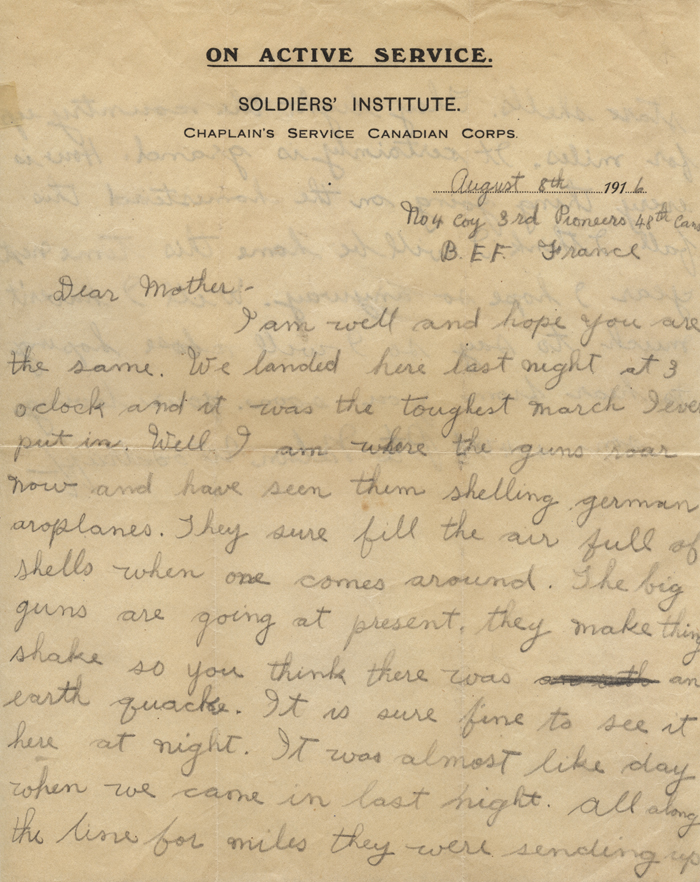 ON ACTIVE SERVICE.
SOLDIERS' INSTITUTE.
CHAPLAIN'S SERVICE CANADIAN CORPS.
August 8th 1916
No 4 Coy 3rd Pioneers 48th Can
B.E.F. France
Dear Mother,-
I am well and hope you are
the same. We landed here last night at 3
oclock and it was the toughest march I ever
put in. Well I am where the guns roar
now and have seen them shelling german
aroplanes. They sure fill the air full of
shells when one comes around. The big
guns are going at present, they make thing
shake so you think there was an
earth quacke. It is sure fine to see it
here at night. It was almost like day
when we came in last night. All along
the line for miles they were sending up